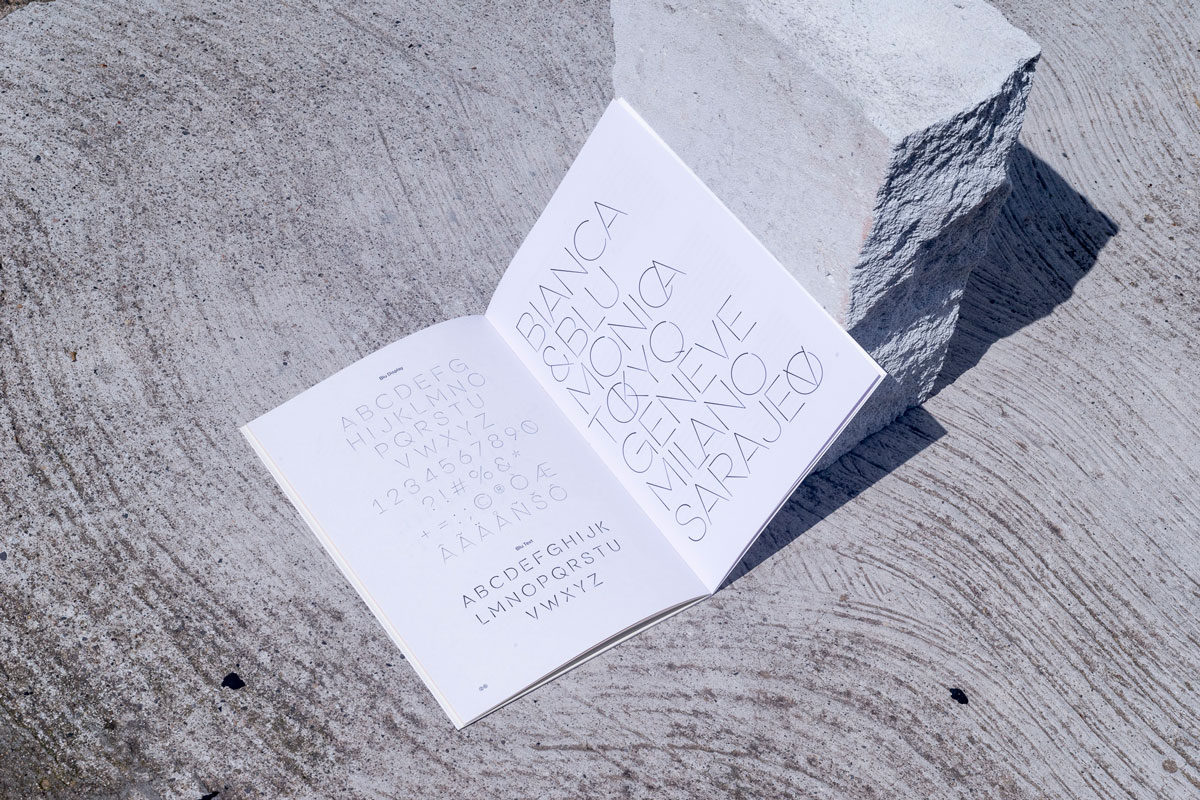 Blu Display
ABCDEFG
HIJKLMNO
PQRSTU
VWXYZ
1234567890
?!#%&*
+=:;©®ÕÆ
ÂÃÄÅÑŠÖ
Blu Text
ABCDEFGHIJK
LMNOPQRSTU
VWXYZ
BIANCA
&BLU
MONICA
TOKYO
GENEVE
MILANO
SARAJEVO